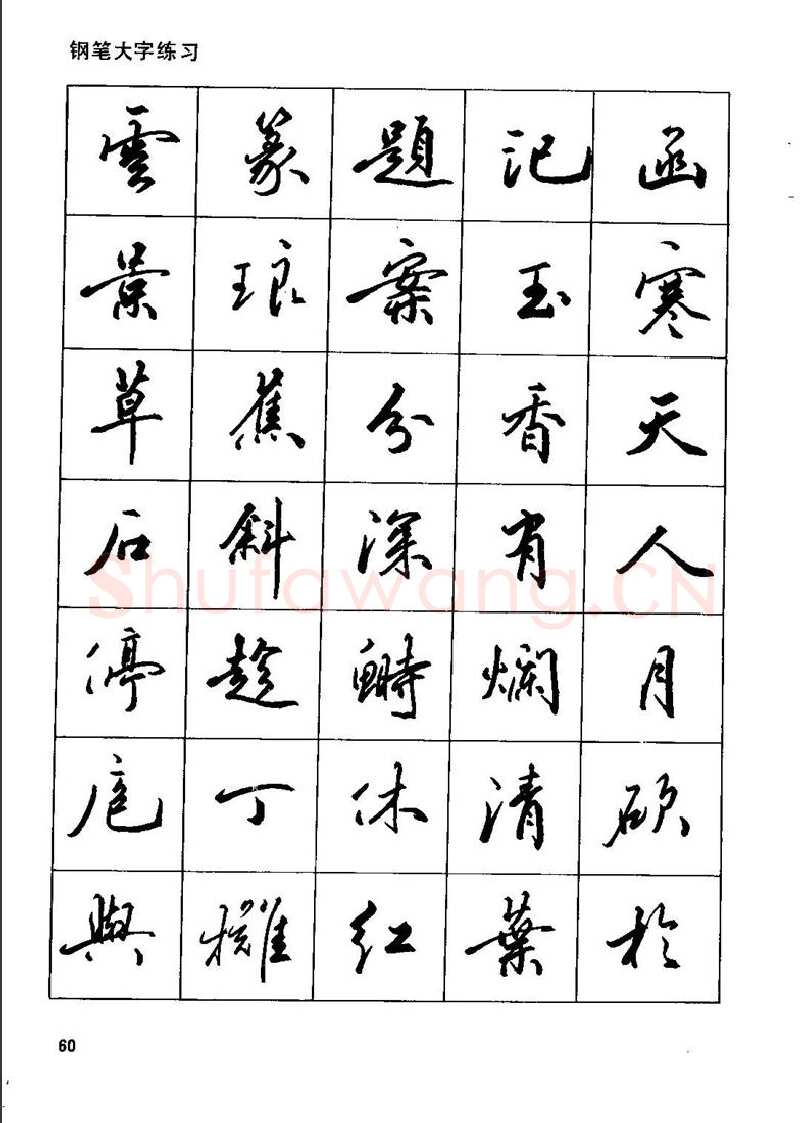 钢笔大字练习
雲 篆 題 记 函
景 琅 案 玉 寒
草 蕉 分 香 天
石 斜 深 有 人
停 趁 鰣 爛 月
扈 丁 休 清 硕
與 櫂 红 葉 於
Shufawang.CN
60